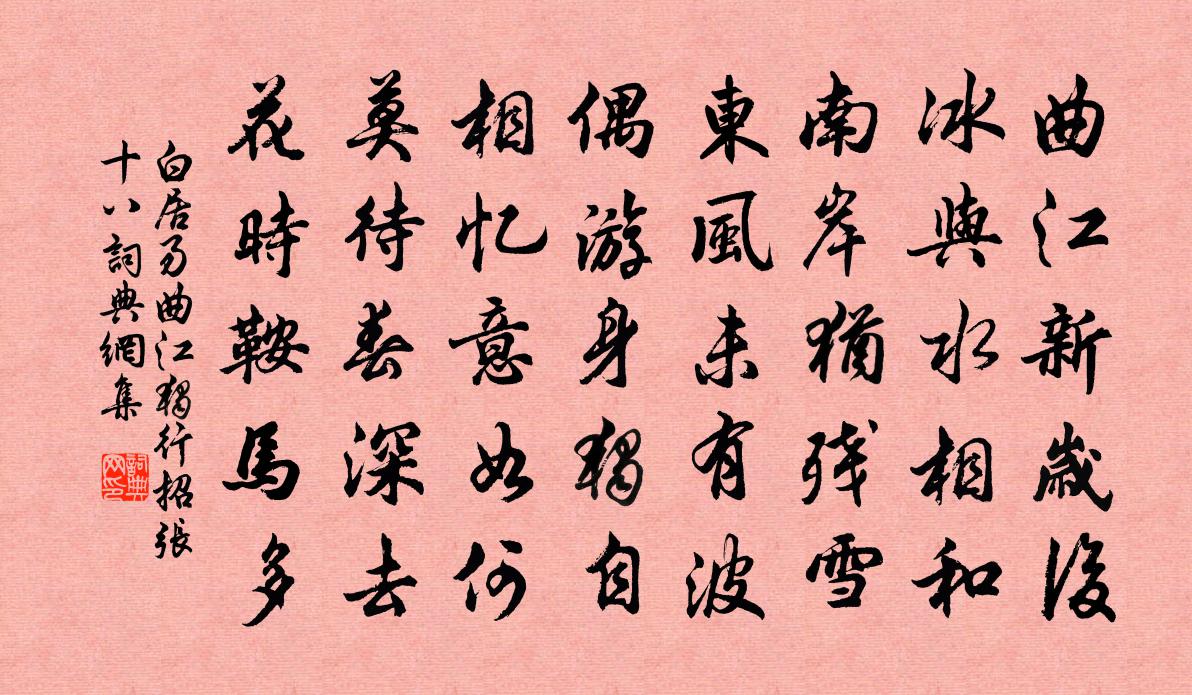 曲江新歲後
冰與水相和
南岸猶殘雪
東風未有波
偶游身獨自
相忆意如何
莫待春深去
花時鞍馬多
白居易曲江獨行招張
十八詞典網集
詞典
网印